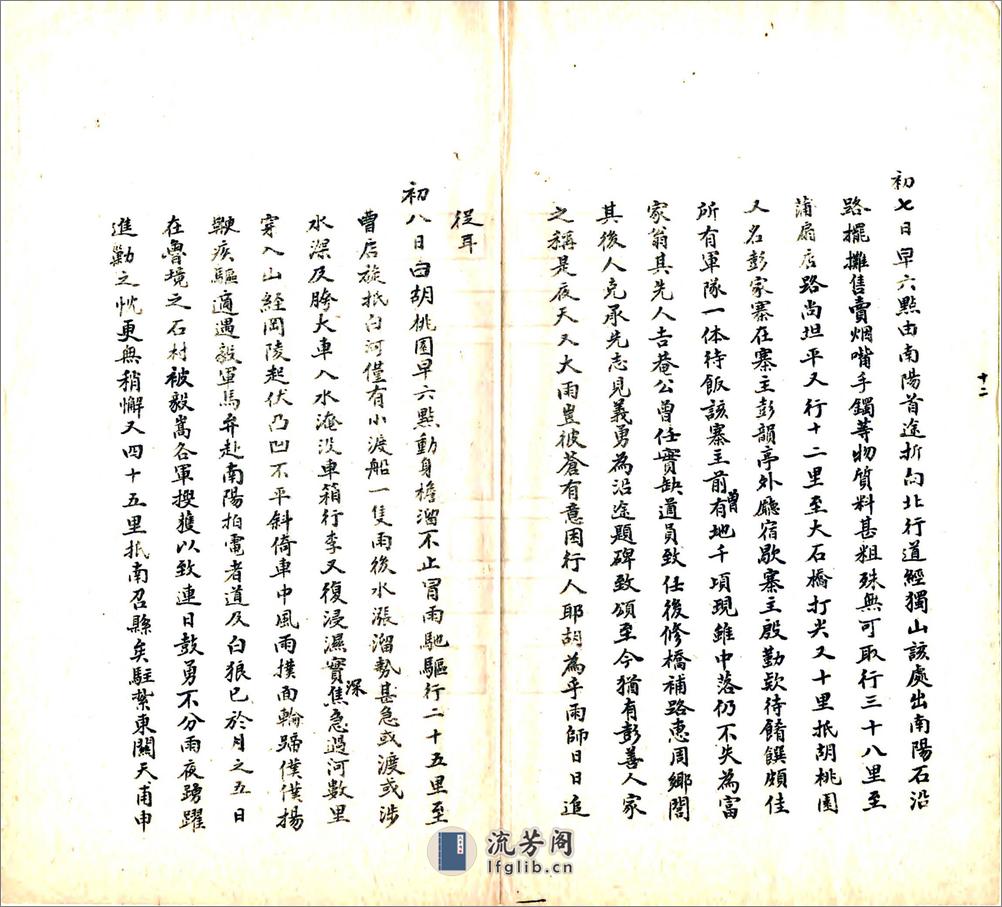 初七日早六點由南陽首途折向北行道經獨山該處出南陽石沿
路擺攤售賣烟嘴手鐲等物質料甚粗殊無可取行三十八里至
蒲扇店路尚坦平又行十二里至大石橋打尖又十里抵胡桃園
又名彭家寨在寨主彭韻亭外廳宿歇寨主殷勤欵待餚饌頗佳
所有軍隊一体待飯該寨主前曾有地千項現雖中落仍不失為富
家翁其先人吉菴公曾任實缺道員致任後修橋補路惠周鄉閭
其後人克承先志見義勇為沿途題碑致頌至今猶有彭善人家
之稱是夜天又大雨豈彼蒼有意困行人耶胡為乎雨師日日追
從耳
初八日由胡桃園早六點動身檐溜不止冒雨馳驅行二十五里至
曹店旋抵白河僅有小渡船一隻雨後水漲溜勢甚急或渡或涉
水深及胯大車入水淹没車箱行李又復浸濕實深焦急過河數里
穿入山經岡陵起伏凸凹不平斜倚車中風雨撲面輪蹄僕僕揚
鞭疾驅適遇毅軍馬弁赴南陽拍電者道及白狼已於月之五日
在魯境之石村被毅嵩各軍搜獲以致連日鼓勇不分雨夜踴躍
進勦之忱更無稍懈又四十五里抵南召縣矣駐紮東關天甫申
十二
流芳阁
lfglib.cn